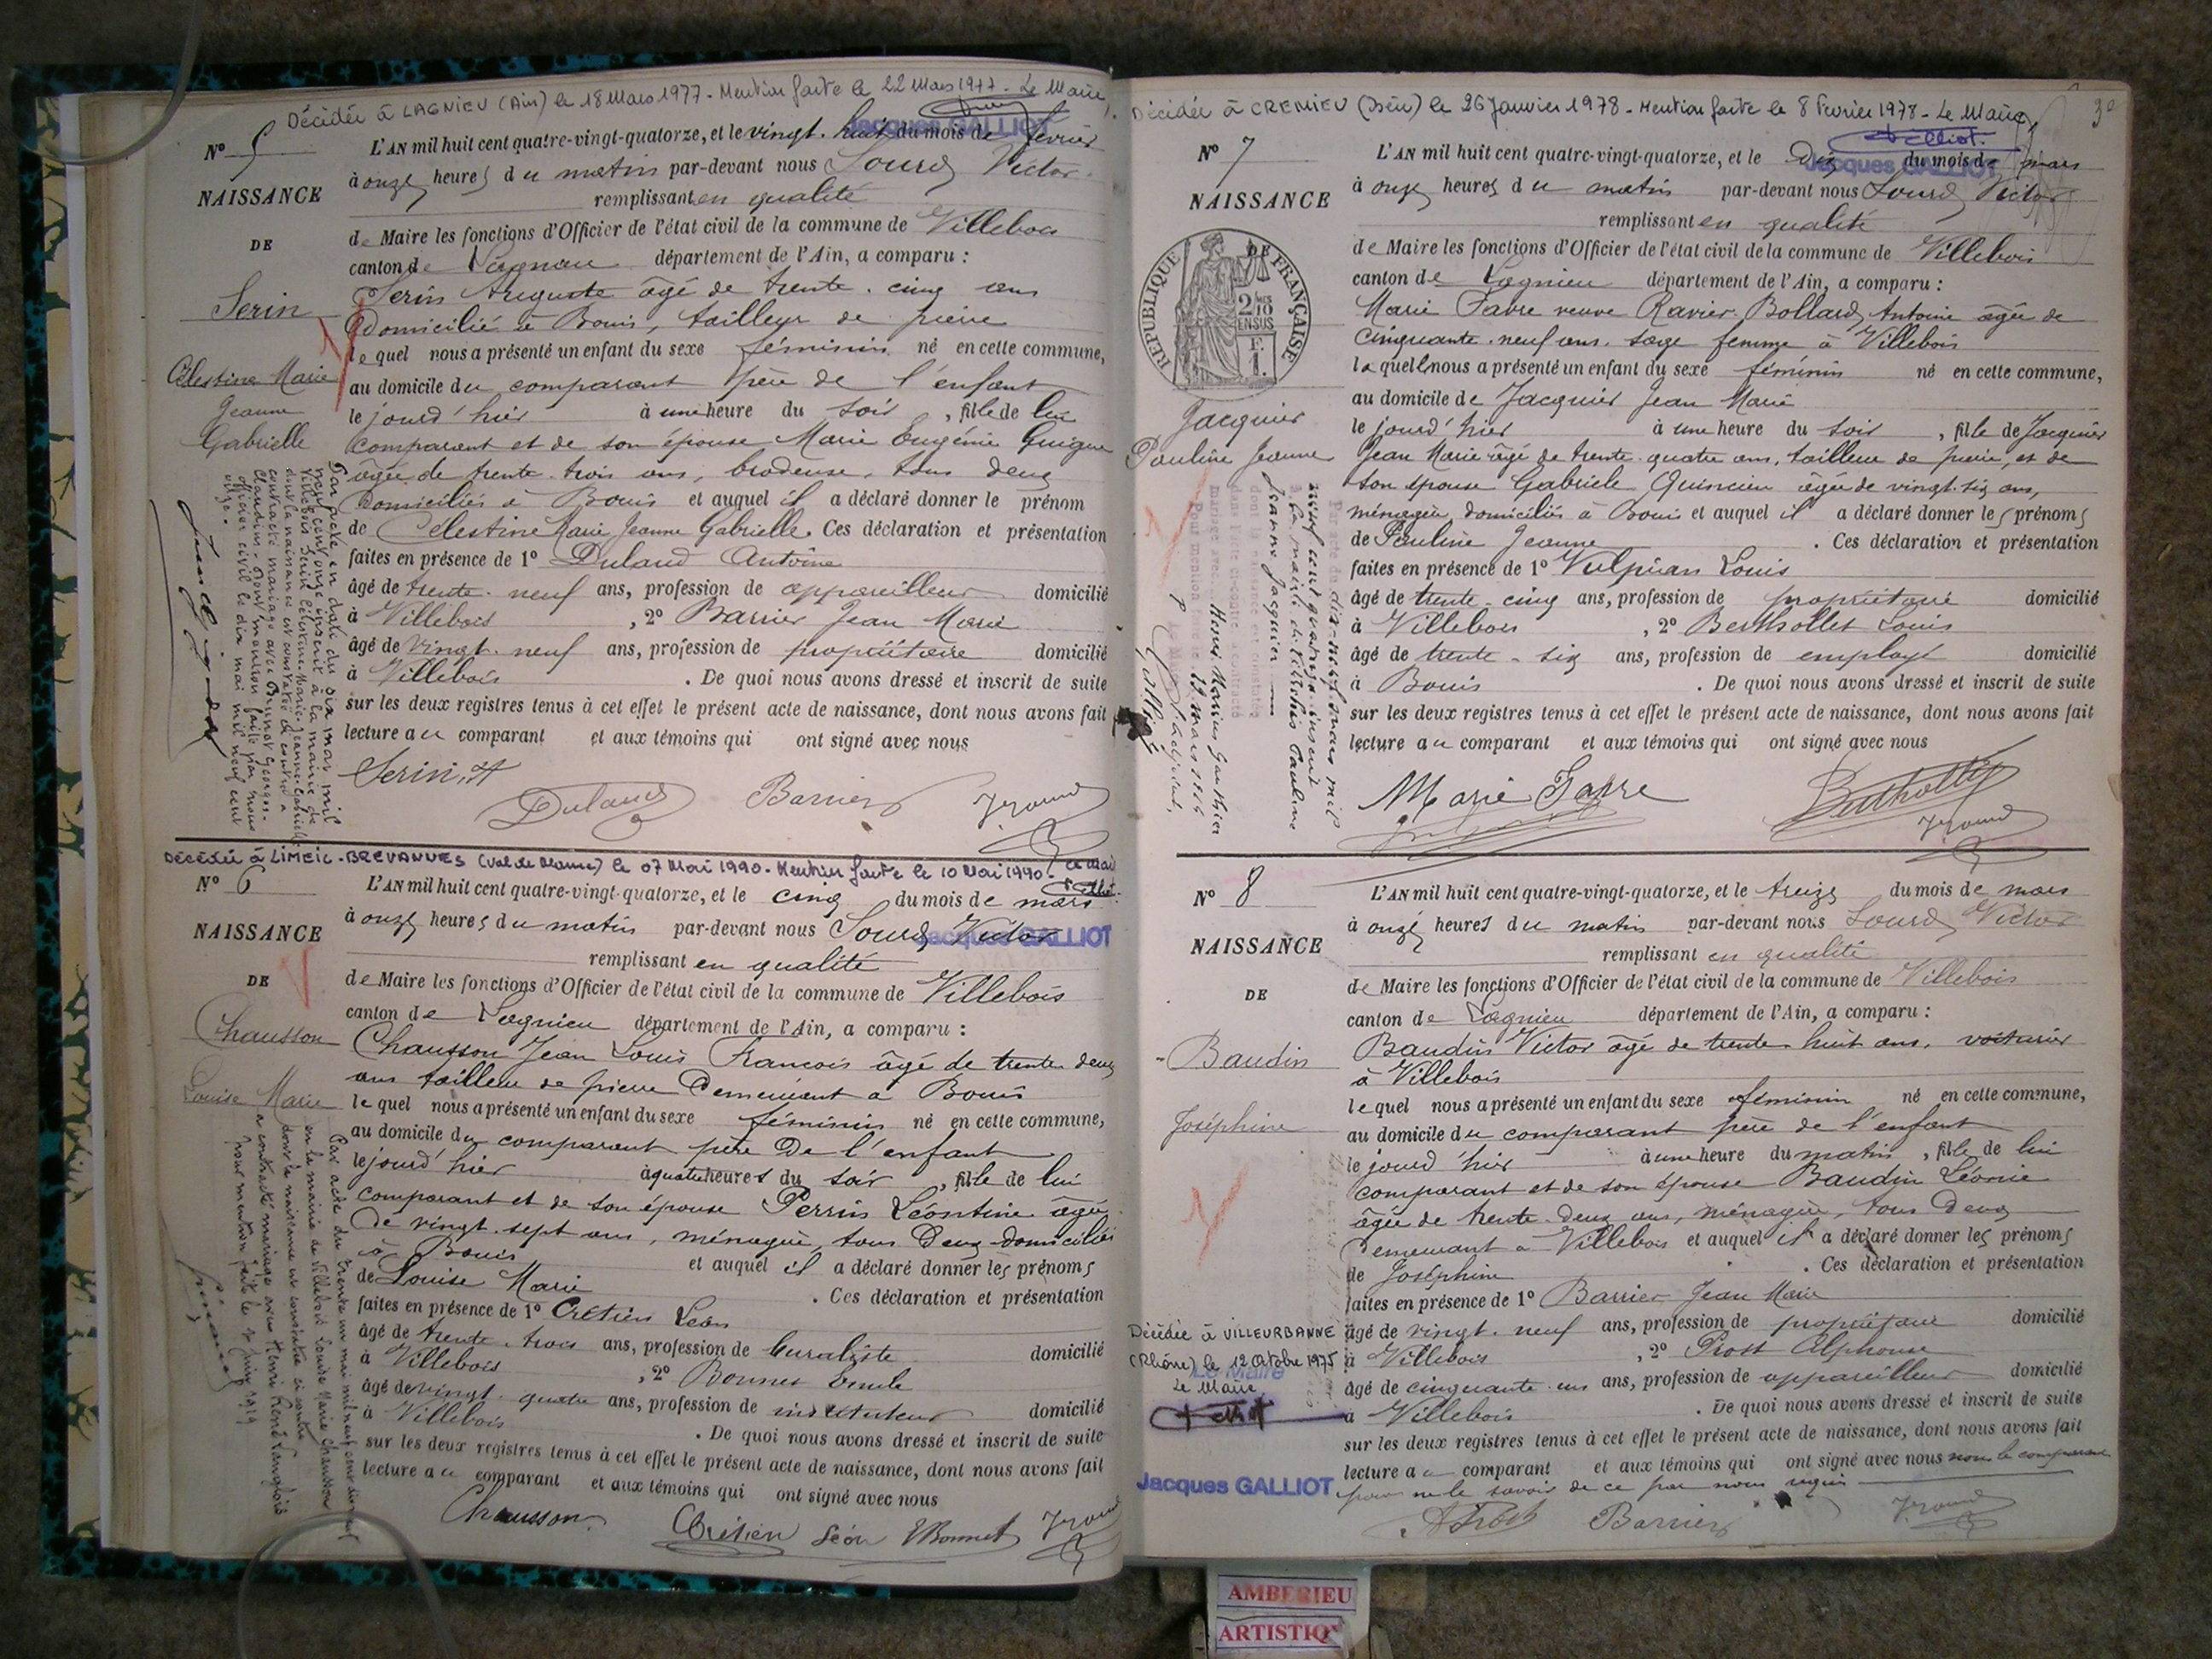 Décédée à LAGNIEU (Ain) le 18 Mars 1977 - Mention faite le 22 Mars 1977 - Le Maire,
Jacques GALLIOT
N° 5
NAISSANCE
DE
Serin
Célestine Marie
Jeanne
Gabrielle
L'AN mil huit cent quatre-vingt-quatorze, et le vingt-huit du mois de février
à onze heures du matin par-devant nous Lourd Victor
remplissant en qualité
de Maire les fonctions d'Officier de l'état civil de la commune de Villebois
canton de Lagnieu département de l'Ain, a comparu :
Serin Auguste âgé de trente-cinq ans
domicilié à Bouis, tailleur de pierre
lequel nous a présenté un enfant du sexe féminin né en cette commune,
au domicile du comparant père de l'enfant
le jourd'hier à une heure du soir, fille de lui
comparant et de son épouse Marie Eugénie Guigue
âgée de trente-trois ans, brodeuse, tous deux
domiciliés à Bouis et auquel il a déclaré donner le prénom
de Célestine Marie Jeanne Gabrielle. Ces déclaration et présentation
faites en présence de 1° Dulaud Antoine
âgé de trente-neuf ans, profession de appareilleur domicilié
à Villebois, 2° Barrier Jean Marie
âgé de vingt-neuf ans, profession de propriétaire domicilié
à Villebois. De quoi nous avons dressé et inscrit de suite
sur les deux registres tenus à cet effet le présent acte de naissance, dont nous avons fait
lecture au comparant et aux témoins qui ont signé avec nous
Par acte en date du dix mai mil
neuf cent onze inscrit à la mairie de
Villebois Serin Célestine Marie Jeanne Gabrielle
dont la naissance est constatée ci contre a
contracté mariage avec Brunot Georges
Claudius. Dont mention faite par nous
officier civil le dix mai mil neuf cent
onze.
Serin A
Dulaud Barrier
Décédée à LIMEIL-BREVANNES (Val de Marne) le 07 Mai 1990 - Mention faite le 10 Mai 1990. Le Maire
Jacques GALLIOT
N° 6
NAISSANCE
DE
Chausson
Louise Marie
L'AN mil huit cent quatre-vingt-quatorze, et le cinq du mois de mars
à onze heures du matin par-devant nous Lourd Victor
remplissant en qualité
de Maire les fonctions d'Officier de l'état civil de la commune de Villebois
canton de Lagnieu département de l'Ain, a comparu :
Chausson Jean Louis Francois âgé de trente-deux
ans tailleur de pierre demeurant à Bouis
lequel nous a présenté un enfant du sexe féminin né en cette commune,
au domicile du comparant père de l'enfant
le jourd'hier à quatre heures du soir, fille de lui
comparant et de son épouse Perrin Léontine âgée
de vingt-sept ans, ménagère, tous deux domiciliés
à Bouis et auquel il a déclaré donner les prénoms
de Louise Marie. Ces déclaration et présentation
faites en présence de 1° Crétien Léon
âgé de trente-trois ans, profession de buraliste domicilié
à Villebois, 2° Bonnet Emile
âgé de vingt-quatre ans, profession de instituteur domicilié
à Villebois. De quoi nous avons dressé et inscrit de suite
sur les deux registres tenus à cet effet le présent acte de naissance, dont nous avons fait
lecture au comparant et aux témoins qui ont signé avec nous
Par acte du trente un mai mil neuf cent dix neuf
en la mairie de Villebois Louise Marie Chausson
dont la naissance est constatée ci contre
a contracté mariage avec Henri René Langlois
Pour mention faite le 2 Juin 1919
Chausson Crétien Léon EBonnet
Décédée à CREMIEU (Isère) le 26 Janvier 1978 - Mention faite le 8 Février 1978 - Le Maire,
Jacques GALLIOT
N° 7
NAISSANCE
DE
REPUBLIQUE FRANÇAISE
2/10
EN SUS
F.
1.
Jacquier
Pauline Jeanne
L'AN mil huit cent quatre-vingt-quatorze, et le dix du mois de mars
à onze heures du matin par-devant nous Lourd Victor
remplissant en qualité
de Maire les fonctions d'Officier de l'état civil de la commune de Villebois
canton de Lagnieu département de l'Ain, a comparu :
Marie Favre veuve Ravier-Bollard Antoine âgée de
cinquante-neuf ans, sage femme à Villebois
laquelle nous a présenté un enfant du sexe féminin né en cette commune,
au domicile de Jacquier Jean Marie
le jourd'hier à une heure du soir, fille de Jacquier
Jean Marie âgé de trente-quatre ans, tailleur de pierre, et de
son épouse Gabriele Quincieu âgée de vingt-six ans,
ménagère, domiciliés à Bouis et auquel il a déclaré donner les prénoms
de Pauline Jeanne. Ces déclaration et présentation
faites en présence de 1° Vulpian Louis
âgé de trente-cinq ans, profession de propriétaire domicilié
à Villebois, 2° Berthollet Louis
âgé de trente-six ans, profession de employé domicilié
à Bouis. De quoi nous avons dressé et inscrit de suite
sur les deux registres tenus à cet effet le présent acte de naissance, dont nous avons fait
lecture au comparant et aux témoins qui ont signé avec nous
Par acte du dix-neuf mars mil
neuf cent quatorze inscrit
à la mairie de Villebois Pauline
Jeanne Jacquier
dont la naissance est constatée
dans l'acte ci-contre a contracté
mariage avec Henri Marius Gauthier
Pour mention 19 mars 1914
Marie Favre
N° 8
NAISSANCE
DE
Baudin
Joséphine
L'AN mil huit cent quatre-vingt-quatorze, et le treize du mois de mars
à onze heures du matin par-devant nous Lourd Victor
remplissant en qualité
de Maire les fonctions d'Officier de l'état civil de la commune de Villebois
canton de Lagnieu département de l'Ain, a comparu :
Baudin Victor âgé de trente-huit ans, voiturier
à Villebois
lequel nous a présenté un enfant du sexe féminin né en cette commune,
au domicile du comparant père de l'enfant
le jourd'hier à une heure du matin, fille de lui
comparant et de son épouse Baudin Léonie
âgée de trente-deux ans, ménagère, tous deux
demeurant à Villebois et auquel il a déclaré donner les prénoms
de Joséphine. Ces déclaration et présentation
faites en présence de 1° Barrier Jean Marie
âgé de vingt-neuf ans, profession de propriétaire domicilié
à Villebois, 2° Prost Alphonse
âgé de cinquante-un ans, profession de appareilleur domicilié
à Villebois. De quoi nous avons dressé et inscrit de suite
sur les deux registres tenus à cet effet le présent acte de naissance, dont nous avons fait
lecture au comparant et aux témoins qui ont signé avec nous non le comparant
pour ne le savoir de ce par nous requis
Décédée à VILLEURBANNE
(Rhône) le 12 Octobre 1975
Le Maire
Le Maire,
Jacques GALLIOT
AProst Barrier
AMBERIEU
ARTISTIQ